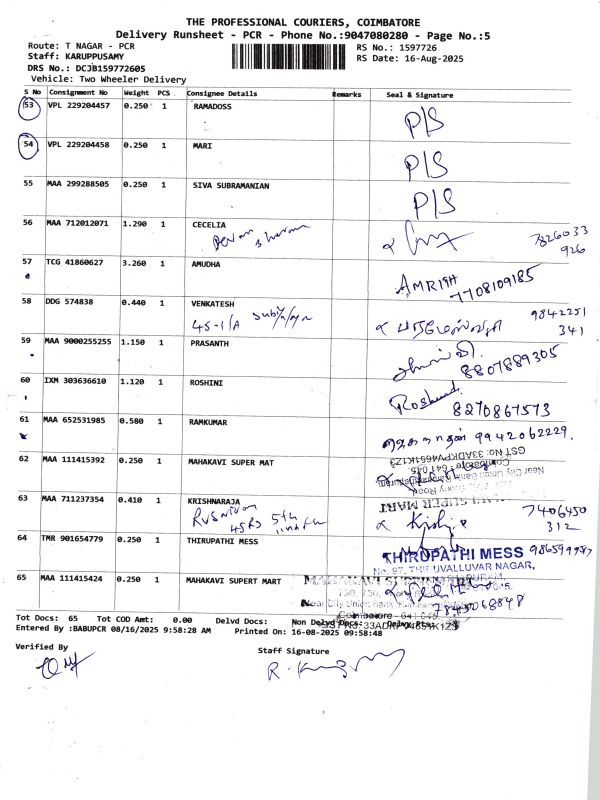 THE PROFESSIONAL COURIERS, COIMBATORE
Delivery Runsheet - PCR - Phone No.:9047080280 - Page No.:5
Route: T NAGAR - PCR RS No.: 1597726
Staff: KARUPPUSAMY RS Date: 16-Aug-2025
DRS No.: DCJB159772605
Vehicle: Two Wheeler Delivery
S No Consignment No Weight PCS Consignee Details Remarks Seal & Signature
53 VPL 229204457 0.250 1 RAMADOSS P/S
54 VPL 229204458 0.250 1 MARI P/S
55 MAA 299288505 0.250 1 SIVA SUBRAMANIAN P/S
56 MAA 712012071 1.290 1 CECELIA 7826033
926
57 TCG 41860627 3.260 1 AMUDHA AMRISH
7708109185
58 DDG 574838 0.440 1 VENKATESH 9842251
45-1/A 341
59 MAA 9000255255 1.150 1 PRASANTH
8807889305
60 IXM 303636610 1.120 1 ROSHINI Roshini
8270867573
61 MAA 652531985 0.580 1 RAMKUMAR 9942062229.
62 MAA 111415392 0.250 1 MAHAKAVI SUPER MAT
GST NO: 33ADKPV4651K1Z3
63 MAA 711237354 0.410 1 KRISHNARAJA 7406450
312
64 TMR 901654779 0.250 1 THIRUPATHI MESS
THIRUPATHI MESS
No. 97, THIRUVALLUVAR NAGAR,
65 MAA 111415424 0.250 1 MAHAKAVI SUPERT MART
7845068848
Tot Docs: 65 Tot COD Amt: 0.00 Delvd Docs: Non Delvd Docs:
Entered By :BABUPCR 08/16/2025 9:58:28 AM Printed On: 16-08-2025 09:58:48
Verified By
Staff Signature